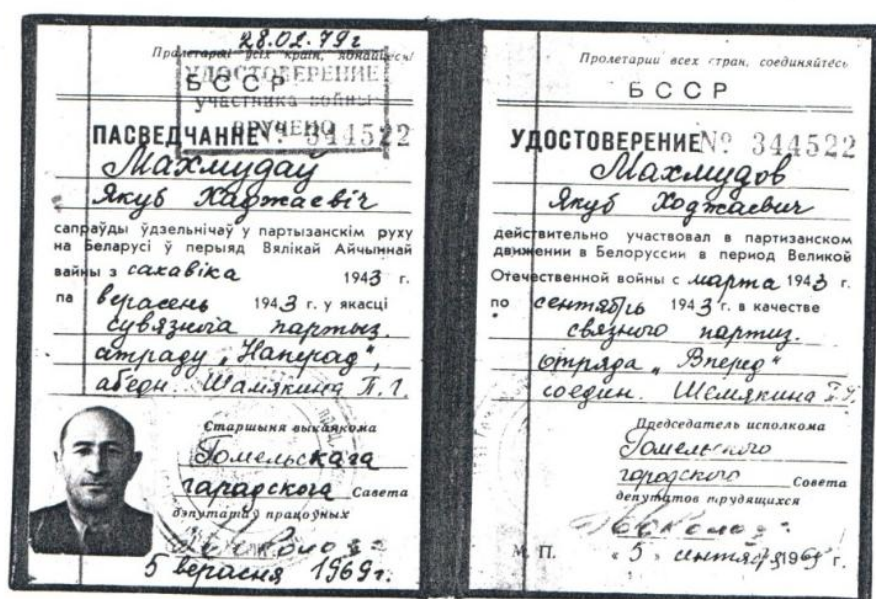 28.02.79г
Пралетарыі ўсіх краін, яднайцеся!
УДОСТОВЕРЕНИЕ
БССР
участника войны
ВРУЧЕНО
ПАСВЕДЧАННЕ № 344522
Махмудаў
Якуб Хаджаевіч
сапраўды ўдзельнічаў у партызанскім руху
на Беларусі ў перыяд Вялікай Айчыннай
вайны з сакавіка 1943 г.
па верасень 1943 г. у якасці
сувязнога партыз.
атраду „Наперад“,
аб'едн. Шамякина П. Г.
Старшыня выканкома
Гомельскага
гарадскога Савета
дэпутатаў працоўных
5 верасня 1969г.
Пролетарии всех стран, соединяйтесь
БССР
УДОСТОВЕРЕНИЕ № 344522
Махмудов
Якуб Ходжаевич
действительно участвовал в партизанском
движении в Белоруссии в период Великой
Отечественной войны с марта 1943 г.
по сентябрь 1943 г. в качестве
связного партиз.
отряда „Вперед“
соедин. Шемякина
Председатель исполкома
Гомельского
городского Совета
депутатов трудящихся
М. П. «5» сентября 1969 г.